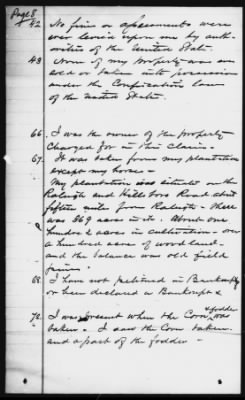 Page 8
42 No fines or assessments were
ever levied upon me by auth-
ority of the United States.
43 None of my property was ever
sold or taken into possession
under the Confiscation laws
of the United States.
66. I was the owner of the property
charged for in this claim.
67. It was taken from my plantation
except my horse -
My plantation was situate on the
Raleigh and Hillsboro Road about
fifteen miles from Raleigh - there
was 869 acres in it. About one
hundred acres in cultivation - over
a hundred acres of wood land -
and the balance was old field
pines -
68. I have not petitioned in Bankruptcy
or been declared a Bankrupt &
72. I was present when the Corn & fodder was
taken - I saw the Corn taken
and a part of the fodder -